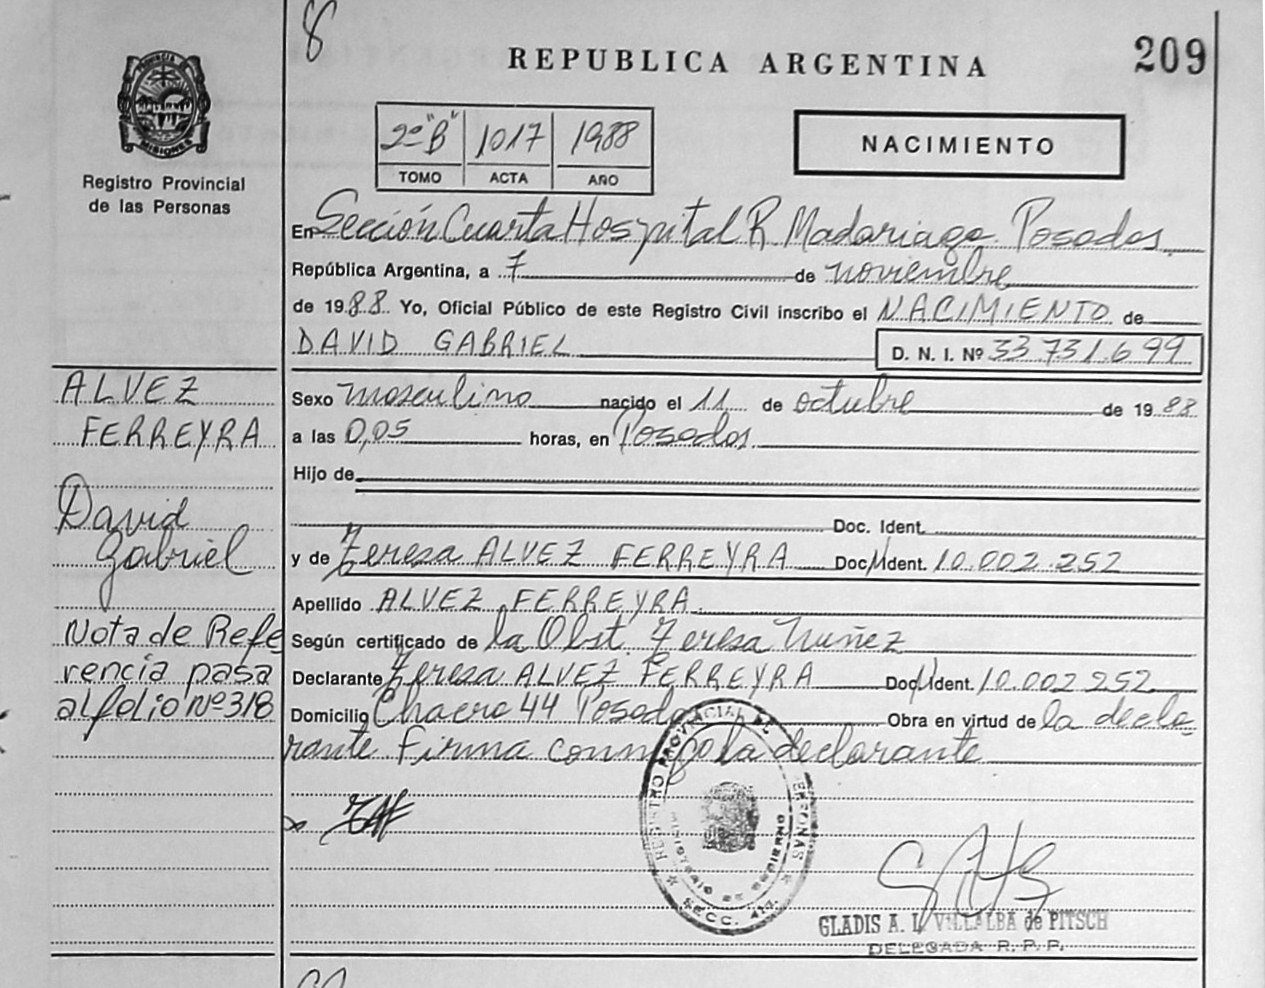 8
REPUBLICA ARGENTINA
209
PROVINCIA DE
MISIONES
Registro Provincial
de las Personas
2º "B" 1017 1988
TOMO ACTA AÑO
NACIMIENTO
En Sección Cuarta Hospital R Madariaga. Posadas
República Argentina, a 7 de noviembre
de 1988. Yo, Oficial Público de este Registro Civil inscribo el NACIMIENTO de
DAVID GABRIEL D. N. I. Nº 33.731.699
ALVEZ
FERREYRA
David
Gabriel
Nota de Refe
rencia pasa
al folio Nº 318
Sexo masculino nacido el 11 de octubre de 1988
a las 0,05 horas, en Posadas
Hijo de
Doc. Ident.
y de Teresa ALVEZ FERREYRA Doc. Ident. 10.002.252
Apellido ALVEZ FERREYRA
Según certificado de la Obst. Teresa Nuñez
Declarante Teresa ALVEZ FERREYRA Doc. Ident. 10.002.252
Domicilio Chacra 44 Posadas Obra en virtud de la decla-
rante Firma conmigo la declarante
REGISTRO PROVINCIAL DE PERSONAS
MINISTERIO DE GOBIERNO
SECC. 4ta.
GLADIS A. L. VILLALBA de PITSCH
DELEGADA R. P. P.